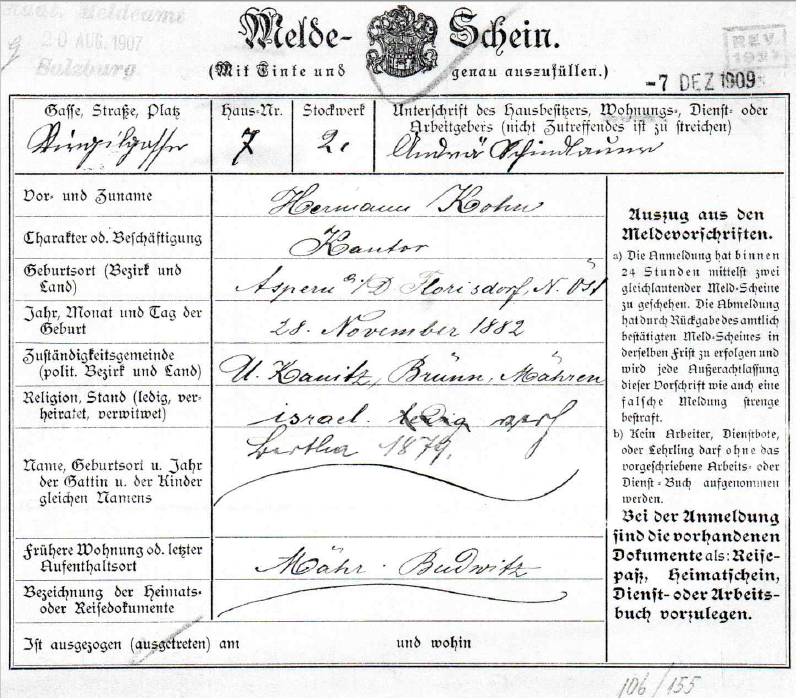 Städt. Meldeamt
20 AUG. 1907
Salzburg
Melde-Schein.
(Mit Tinte und genau auszufüllen.)
REV.
-7 DEZ 1909
Gasse, Straße, Platz
Haus-Nr.
Stockwerk
Unterschrift des Hausbesitzers, Wohnungs-, Dienst- oder
Arbeitgebers (nicht Zutreffendes ist zu streichen)
Virgilgasse
7
2.
Andrä Schindlauer
Vor- und Zuname
Hermann Kohn
Charakter od. Beschäftigung
Kantor
Geburtsort (Bezirk und
Land)
Aspern a/D. Florisdorf, N. Öst
Jahr, Monat und Tag der
Geburt
28. November 1882
Zuständigkeitsgemeinde
(polit. Bezirk und Land)
U. Kanitz, Brünn, Mähren
Religion, Stand (ledig, ver-
heiratet, verwitwet)
israel. ledig verh
Name, Geburtsort u. Jahr
der Gattin u. der Kinder
gleichen Namens
Bertha 1879.
Frühere Wohnung od. letzter
Aufenthaltsort
Mähr. Budwitz
Bezeichnung der Heimats-
oder Reisedokumente
Ist ausgezogen (ausgetreten) am und wohin
Auszug aus den
Meldevorschriften.
a) Die Anmeldung hat binnen
24 Stunden mittelst zwei
gleichlautender Meld-Scheine
zu geschehen. Die Abmeldung
hat durch Rückgabe des amtlich
bestätigten Meld-Scheines in
derselben Frist zu erfolgen und
wird jede Außerachtlassung
dieser Vorschrift wie auch eine
falsche Meldung strenge
bestraft.
b) Kein Arbeiter, Dienstbote,
oder Lehrling darf ohne das
vorgeschriebene Arbeits- oder
Dienst-Buch aufgenommen
werden.
Bei der Anmeldung
sind die vorhandenen
Dokumente als: Reise-
paß, Heimatschein,
Dienst- oder Arbeits-
buch vorzulegen.
106/155